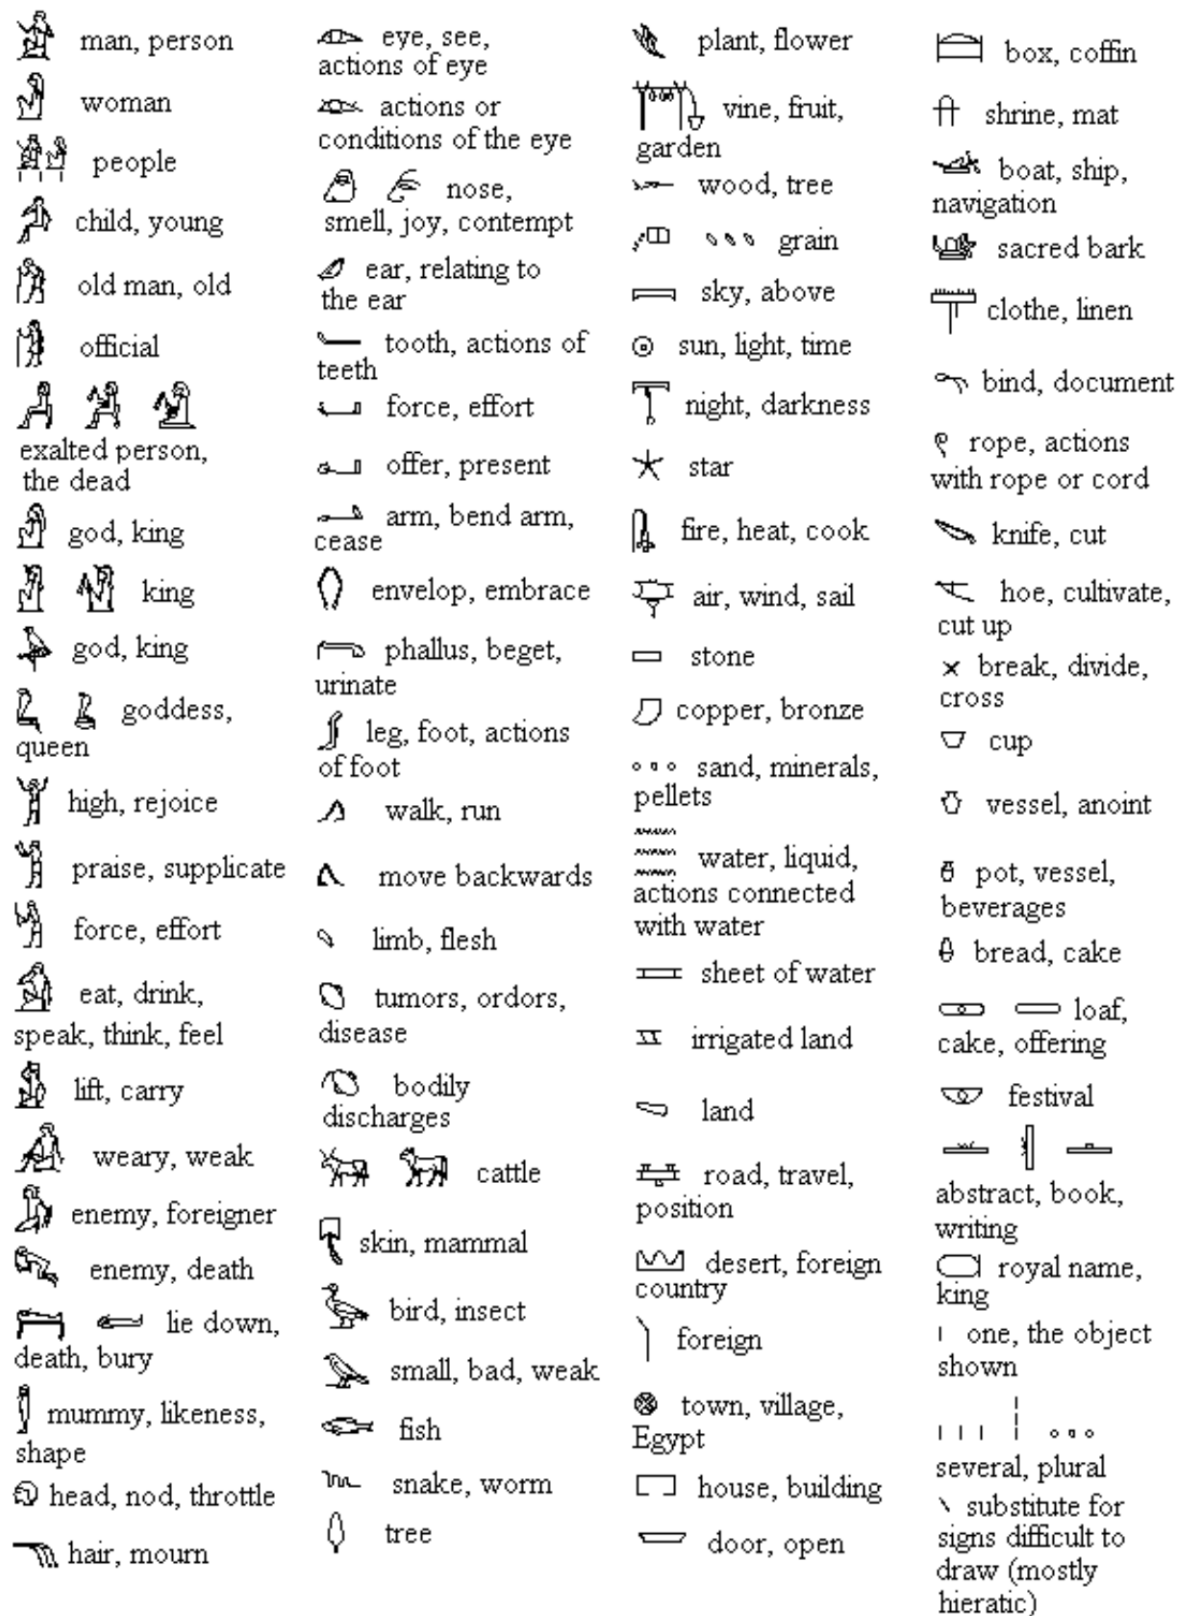 man, person
woman
people
child, young
old man, old
official
exalted person,
the dead
god, king
king
god, king
goddess,
queen
high, rejoice
praise, supplicate
force, effort
eat, drink,
speak, think, feel
lift, carry
weary, weak
enemy, foreigner
enemy, death
lie down,
death, bury
mummy, likeness,
shape
head, nod, throttle
hair, mourn
eye, see,
actions of eye
actions or
conditions of the eye
nose,
smell, joy, contempt
ear, relating to
the ear
tooth, actions of
teeth
force, effort
offer, present
arm, bend arm,
cease
envelop, embrace
phallus, beget,
urinate
leg, foot, actions
of foot
walk, run
move backwards
limb, flesh
tumors, ordors,
disease
bodily
discharges
cattle
skin, mammal
bird, insect
small, bad, weak
fish
snake, worm
tree
plant, flower
vine, fruit,
garden
wood, tree
grain
sky, above
sun, light, time
night, darkness
star
fire, heat, cook
air, wind, sail
stone
copper, bronze
sand, minerals,
pellets
water, liquid,
actions connected
with water
sheet of water
irrigated land
land
road, travel,
position
desert, foreign
country
foreign
town, village,
Egypt
house, building
door, open
box, coffin
shrine, mat
boat, ship,
navigation
sacred bark
clothe, linen
bind, document
rope, actions
with rope or cord
knife, cut
hoe, cultivate,
cut up
break, divide,
cross
cup
vessel, anoint
pot, vessel,
beverages
bread, cake
loaf,
cake, offering
festival
abstract, book,
writing
royal name,
king
one, the object
shown
several, plural
substitute for
signs difficult to
draw (mostly
hieratic)